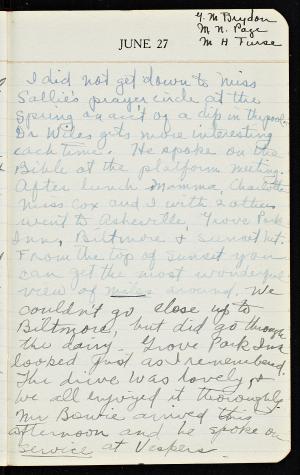 G. M Brydon
M. N. Page
M H Turse
JUNE 27
I did not get down to Miss
Sallie's prayer circle at the
Spring on ac't of a dip in the pool.
Dr Wiles gets more interesting
each time. He spoke on the
Bible at the platform meeting.
After lunch Mamma, Charlotte
Miss Cox and I with 2 others
went to Asheville, Grove Park
Inn, Biltmore & Sunset Mt.
From the top of sunset you
can get the most wonderful
view of miles around. We
couldn't go close up to
Biltmore, but did go through
the dairy. Grove Park Inn
looked just as I remembered.
The drive was lovely, &
we all enjoyed it thoroughly.
Mr Bowie arrived this
afternoon and he spoke on
Service at Vespers.